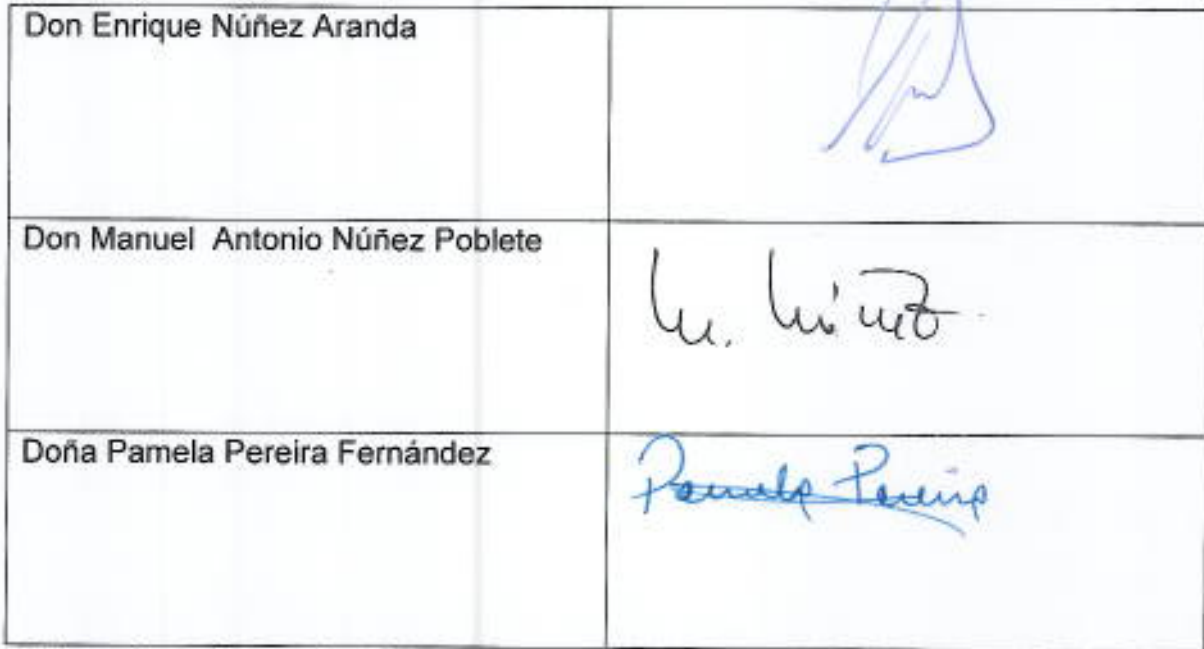 Don Enrique Núñez Aranda
Don Manuel Antonio Núñez Poblete
M. Núñez
Doña Pamela Pereira Fernández
Pamela Pereira